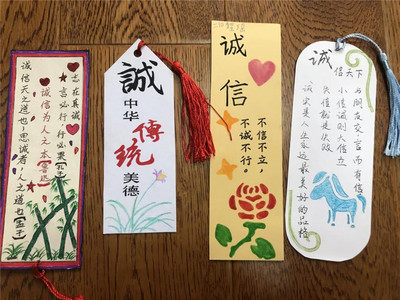 志在真诚
言必行 行必果【孔子】
诚信为人之本【鲁迅】
诚信天之道也~思诚者，人之道也【孟子】
誠
中华
傳統
美德
诚信
不信不立，
不诚不行。
诚信天下
与朋友交，言而有信
小信诚则大信立
失信就是失败
诚实是人生永远最美好的品格